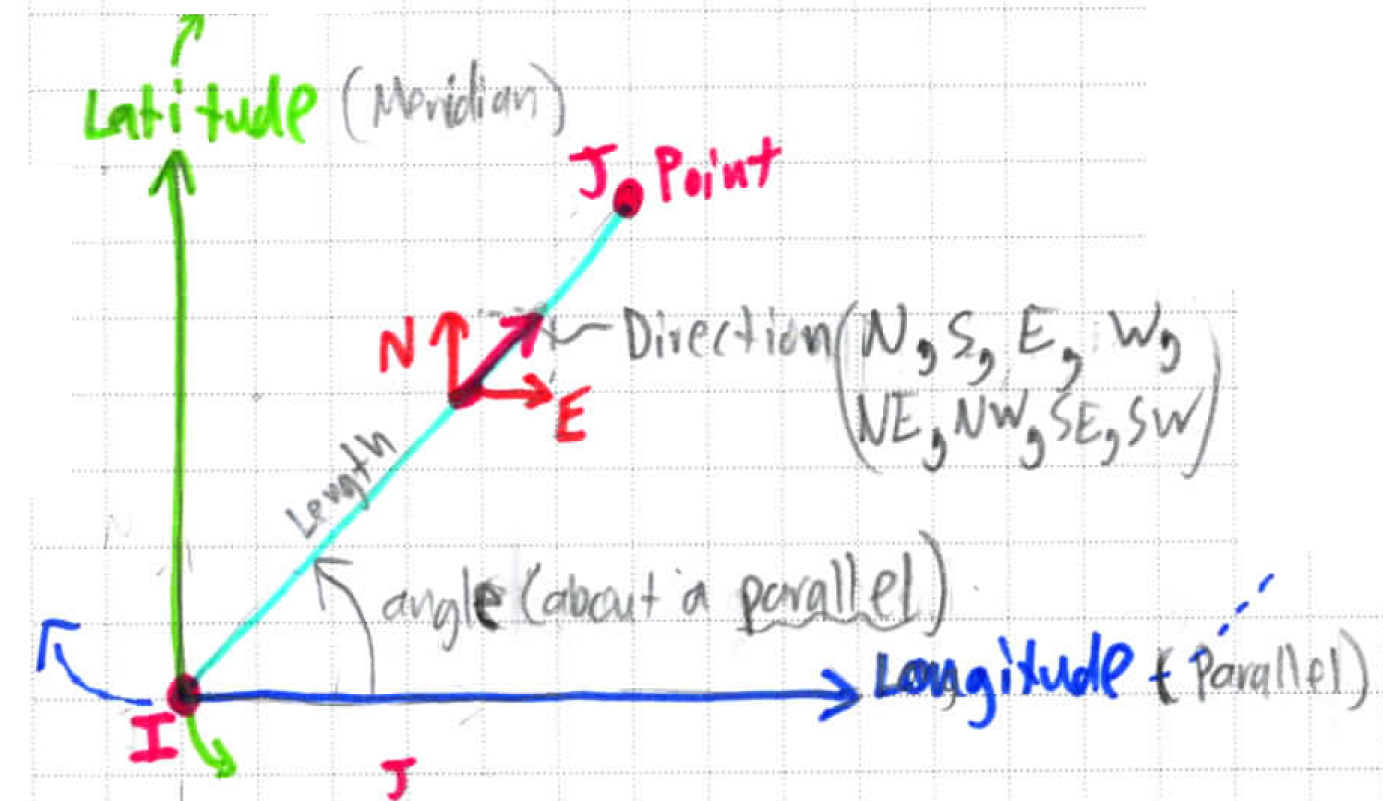 Latitude (Meridian)
J Point
N
E
Direction (N, S, E, W,
NE, NW, SE, SW)
Length
angle (about a parallel)
Longitude (Parallel)
I
J